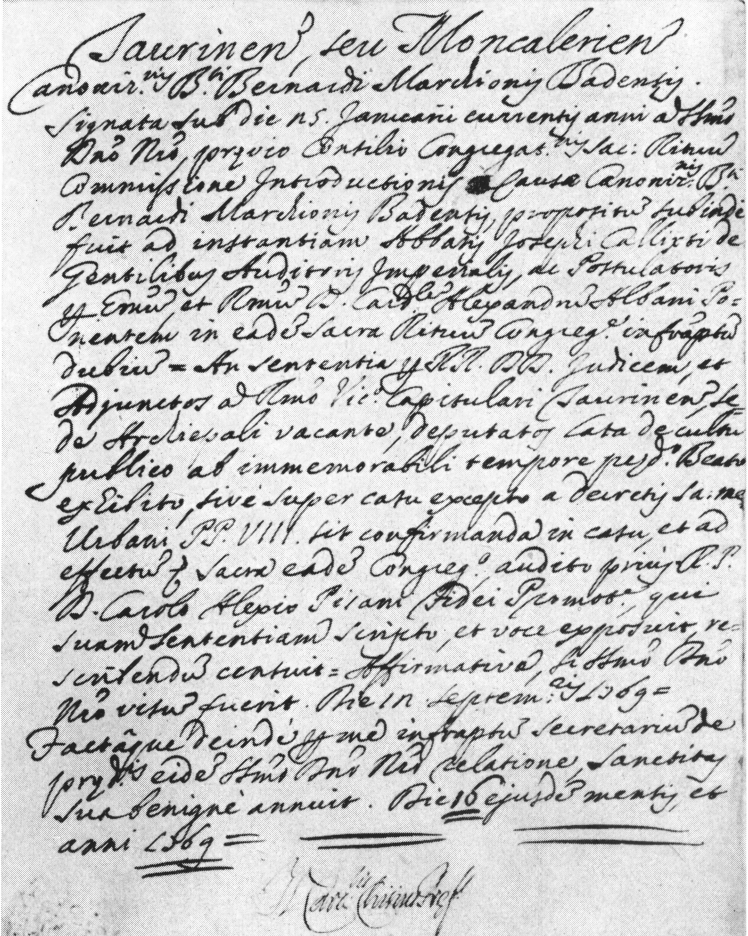 Taurinen, seu Moncalerien
Canoniz.nis B.ti Bernardi Marchionis Badensis.
Signata sub die 25. Januarii currentis anni a SSmo
Dno Nro, prævio Consilio Congregat.nis Sac: Rituu
Commissione Introductionis Causæ Canoniz.nis B.ti
Bernardi Marchionis Badensis, propositu subinde
fuit ad instantiam Abbatis Josephi Callixti de
Gentilibus Auditoris Imperialis, ac Postulatoris
p Emu et Rmu D. Card.lem Alexandru Albani Po-
nentem in eade Sacra Rituu Congreg.e infraptu
dubiu = An sententia p RR. DD. Judicem, et
Adjunctos a Rmo Vic.o Capitulari Taurinen, Se-
de Archiepali vacante, deputatos lata de cultu
publico ab immemorabili tempore pred.o Beato
exhibito, sive super casu excepto a decretis sa: me:
Urbani PP. VIII. sit confirmanda in casu, et ad
effectu &. Sacra eade Congreg.o, audito prius R. P.
D. Carolo Alexio Pisani Fidei Promot.e, qui
suam sententiam scripto, et voce exposuit, re-
scribendu censuit = Affirmativa, si SSmo Dno
Nro visu fuerit. Die Septem.ris 1769 =
Factaque deinde p me infraptu Secretariu de
præd.is eide SSmo Dno Nro relatione, Sanctitas
Sua benigne annuit. Die 16 ejusde mensis, et
anni 1769 =